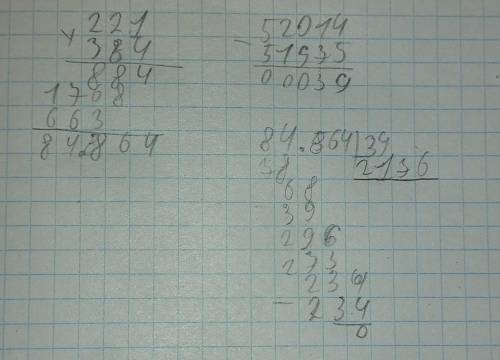 221
× 384
884
1768
663
84.864
52014
- 51975
00039
84.864 | 39
78 | 2176
68
39
296
273
234
- 234
0